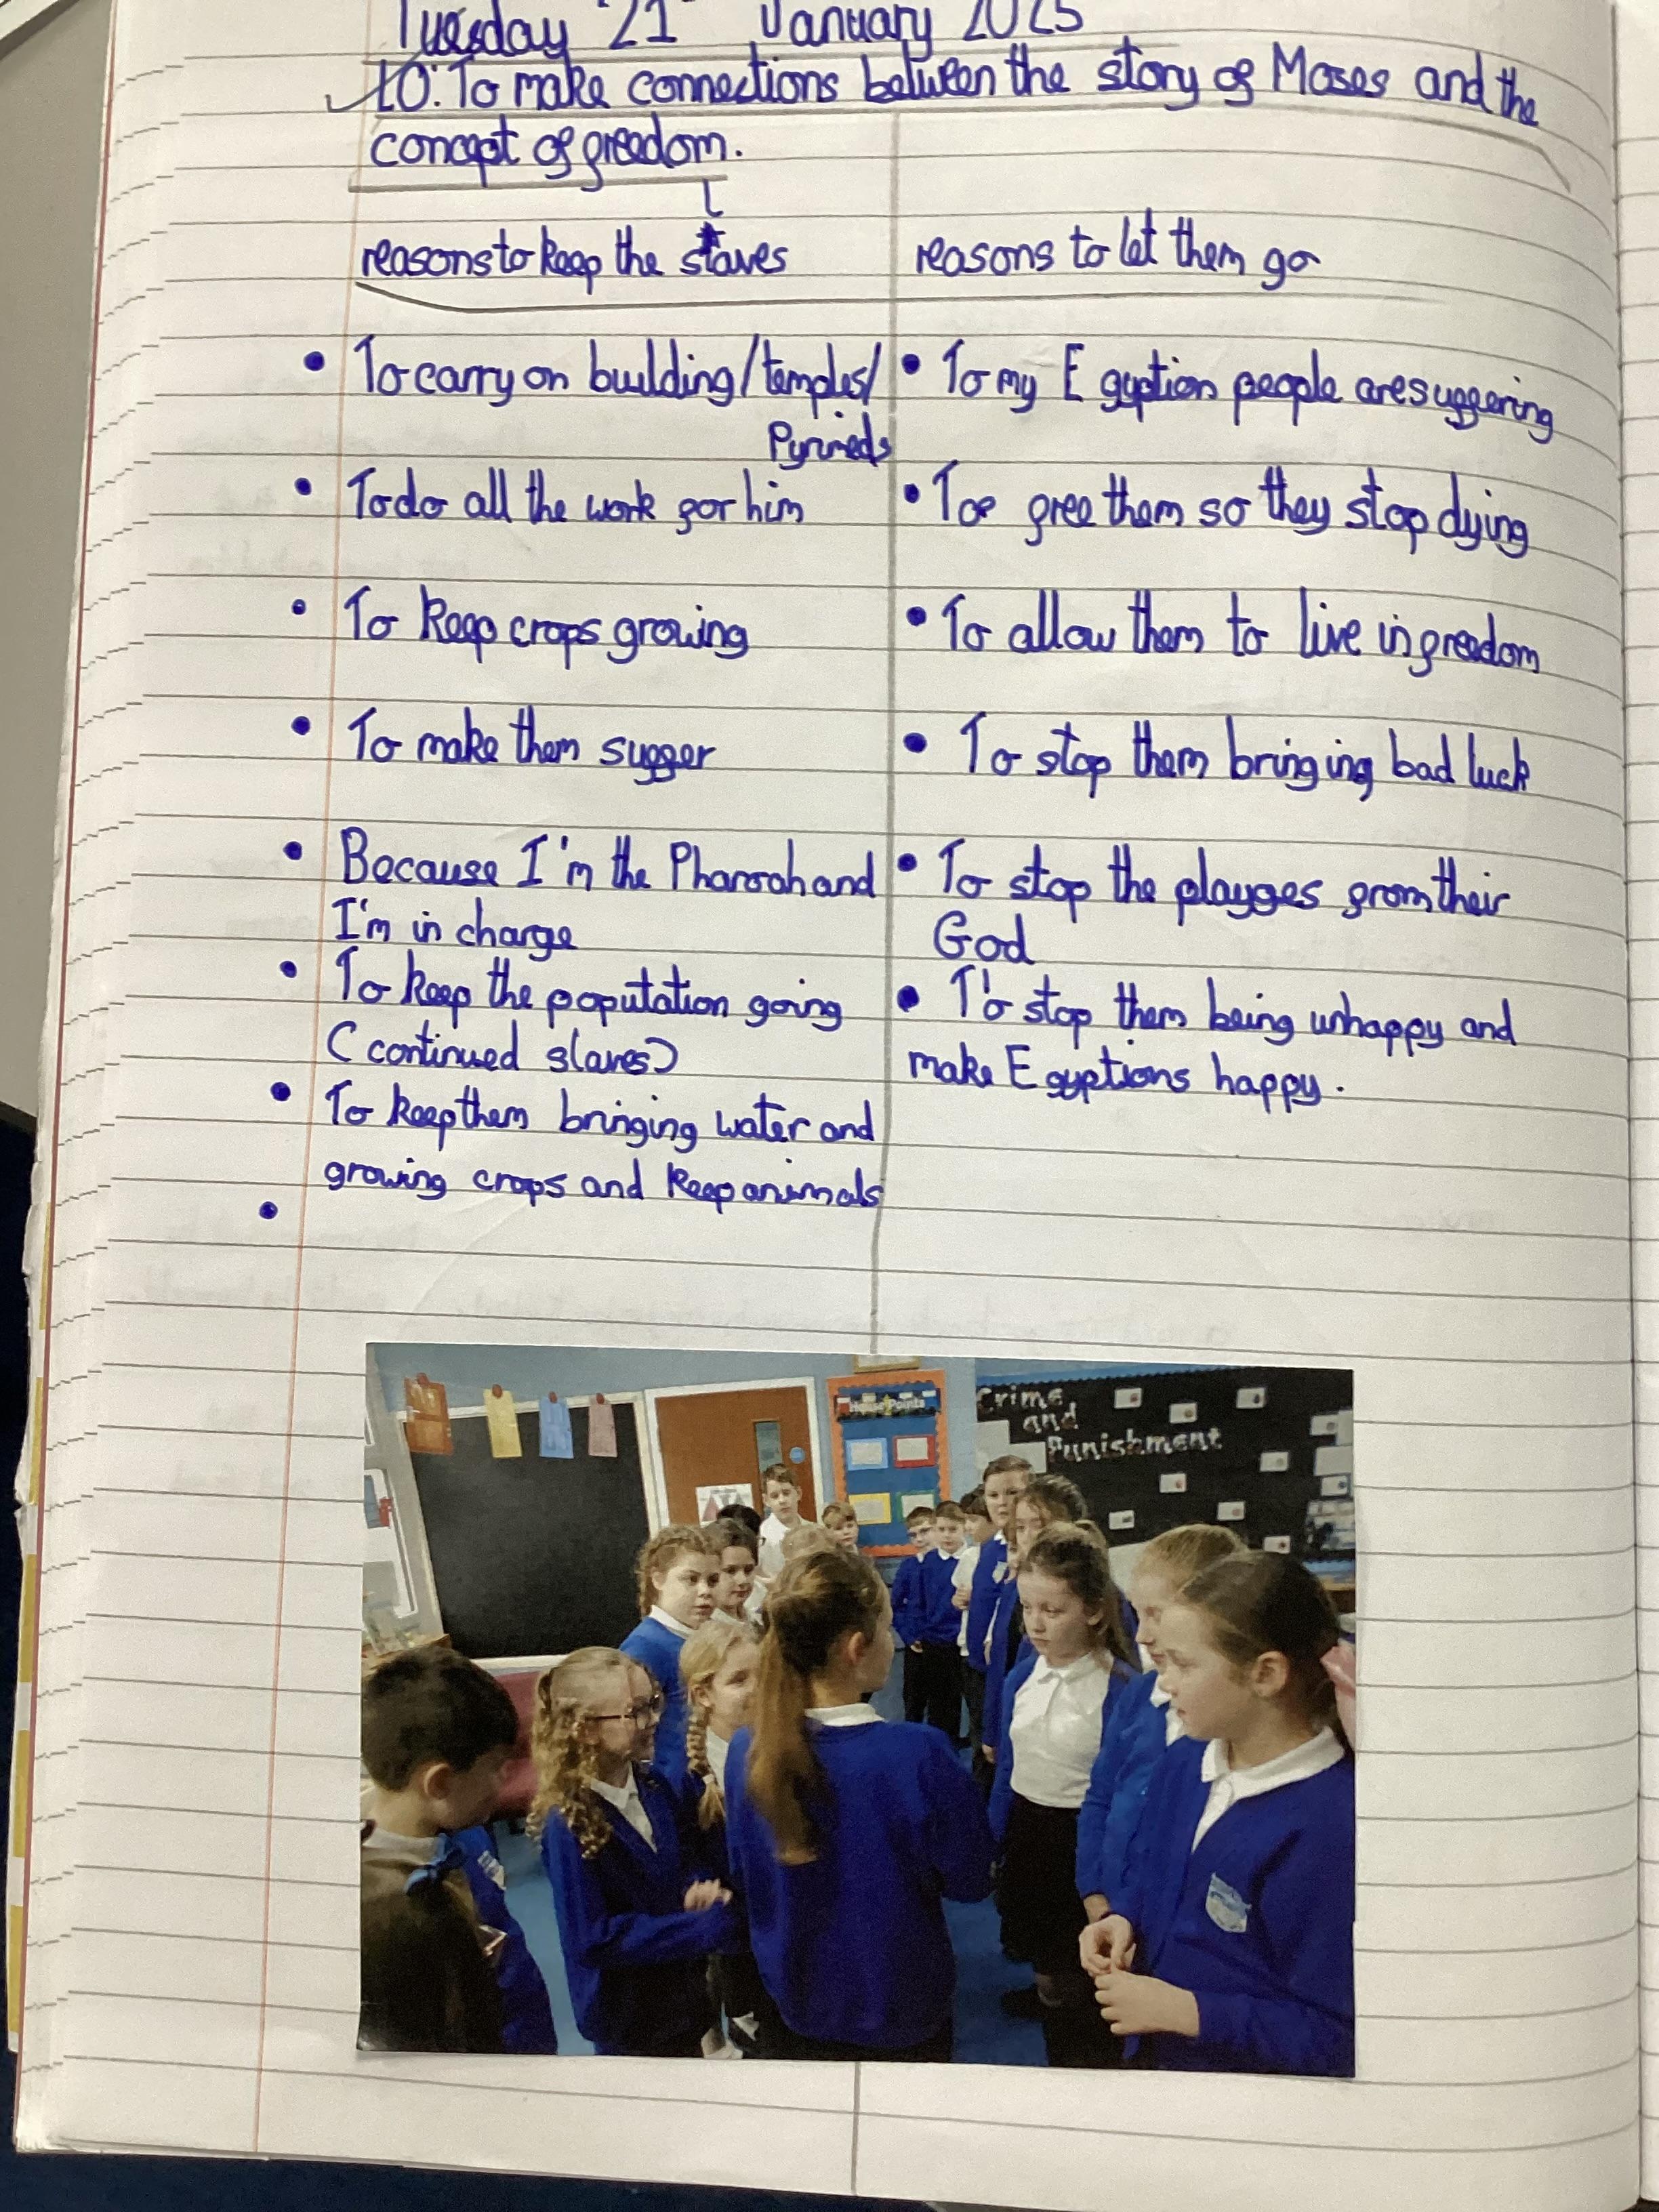 Tuesday 21st January 2025
LO: To make connections between the story of Moses and the
concept of freedom.
l
reasons to keep the slaves
• To carry on building/temples/
Pyrimeds
• To do all the work for him
• To keep crops growing
• To make them suffer
• Because I'm the Pharoah and
I'm in charge
• To keep the population going
(continued slaves)
• To keep them bringing water and
growing crops and keep animals
•
reasons to let them go
• To my Egyption people are suffering
• To free them so they stop dying
• To allow them to live in freedom
• To stop them bringing bad luck
• To stop the playges from their
God
• To stop them being unhappy and
make Egyptions happy.
House Points
Crime
and
Punishment